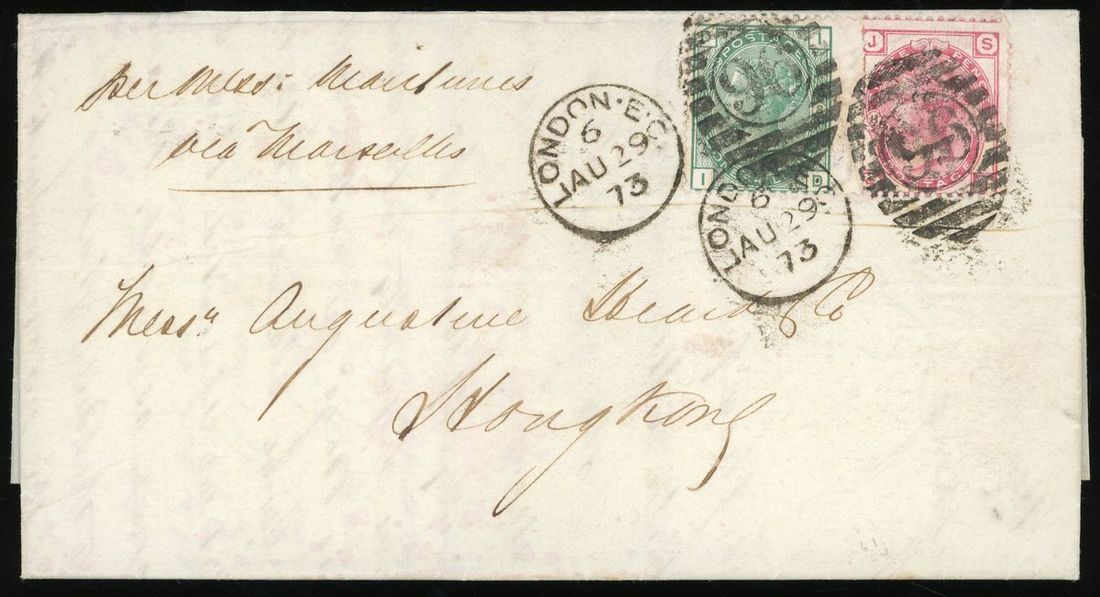 per Mess: Maritimes
via Marseilles
Messrs Augustine Heard & Co
Hongkong
LONDON·E.C.
6
AU 29
73
LONDON
6
AU 29
73
POSTAGE
L
I D
J S